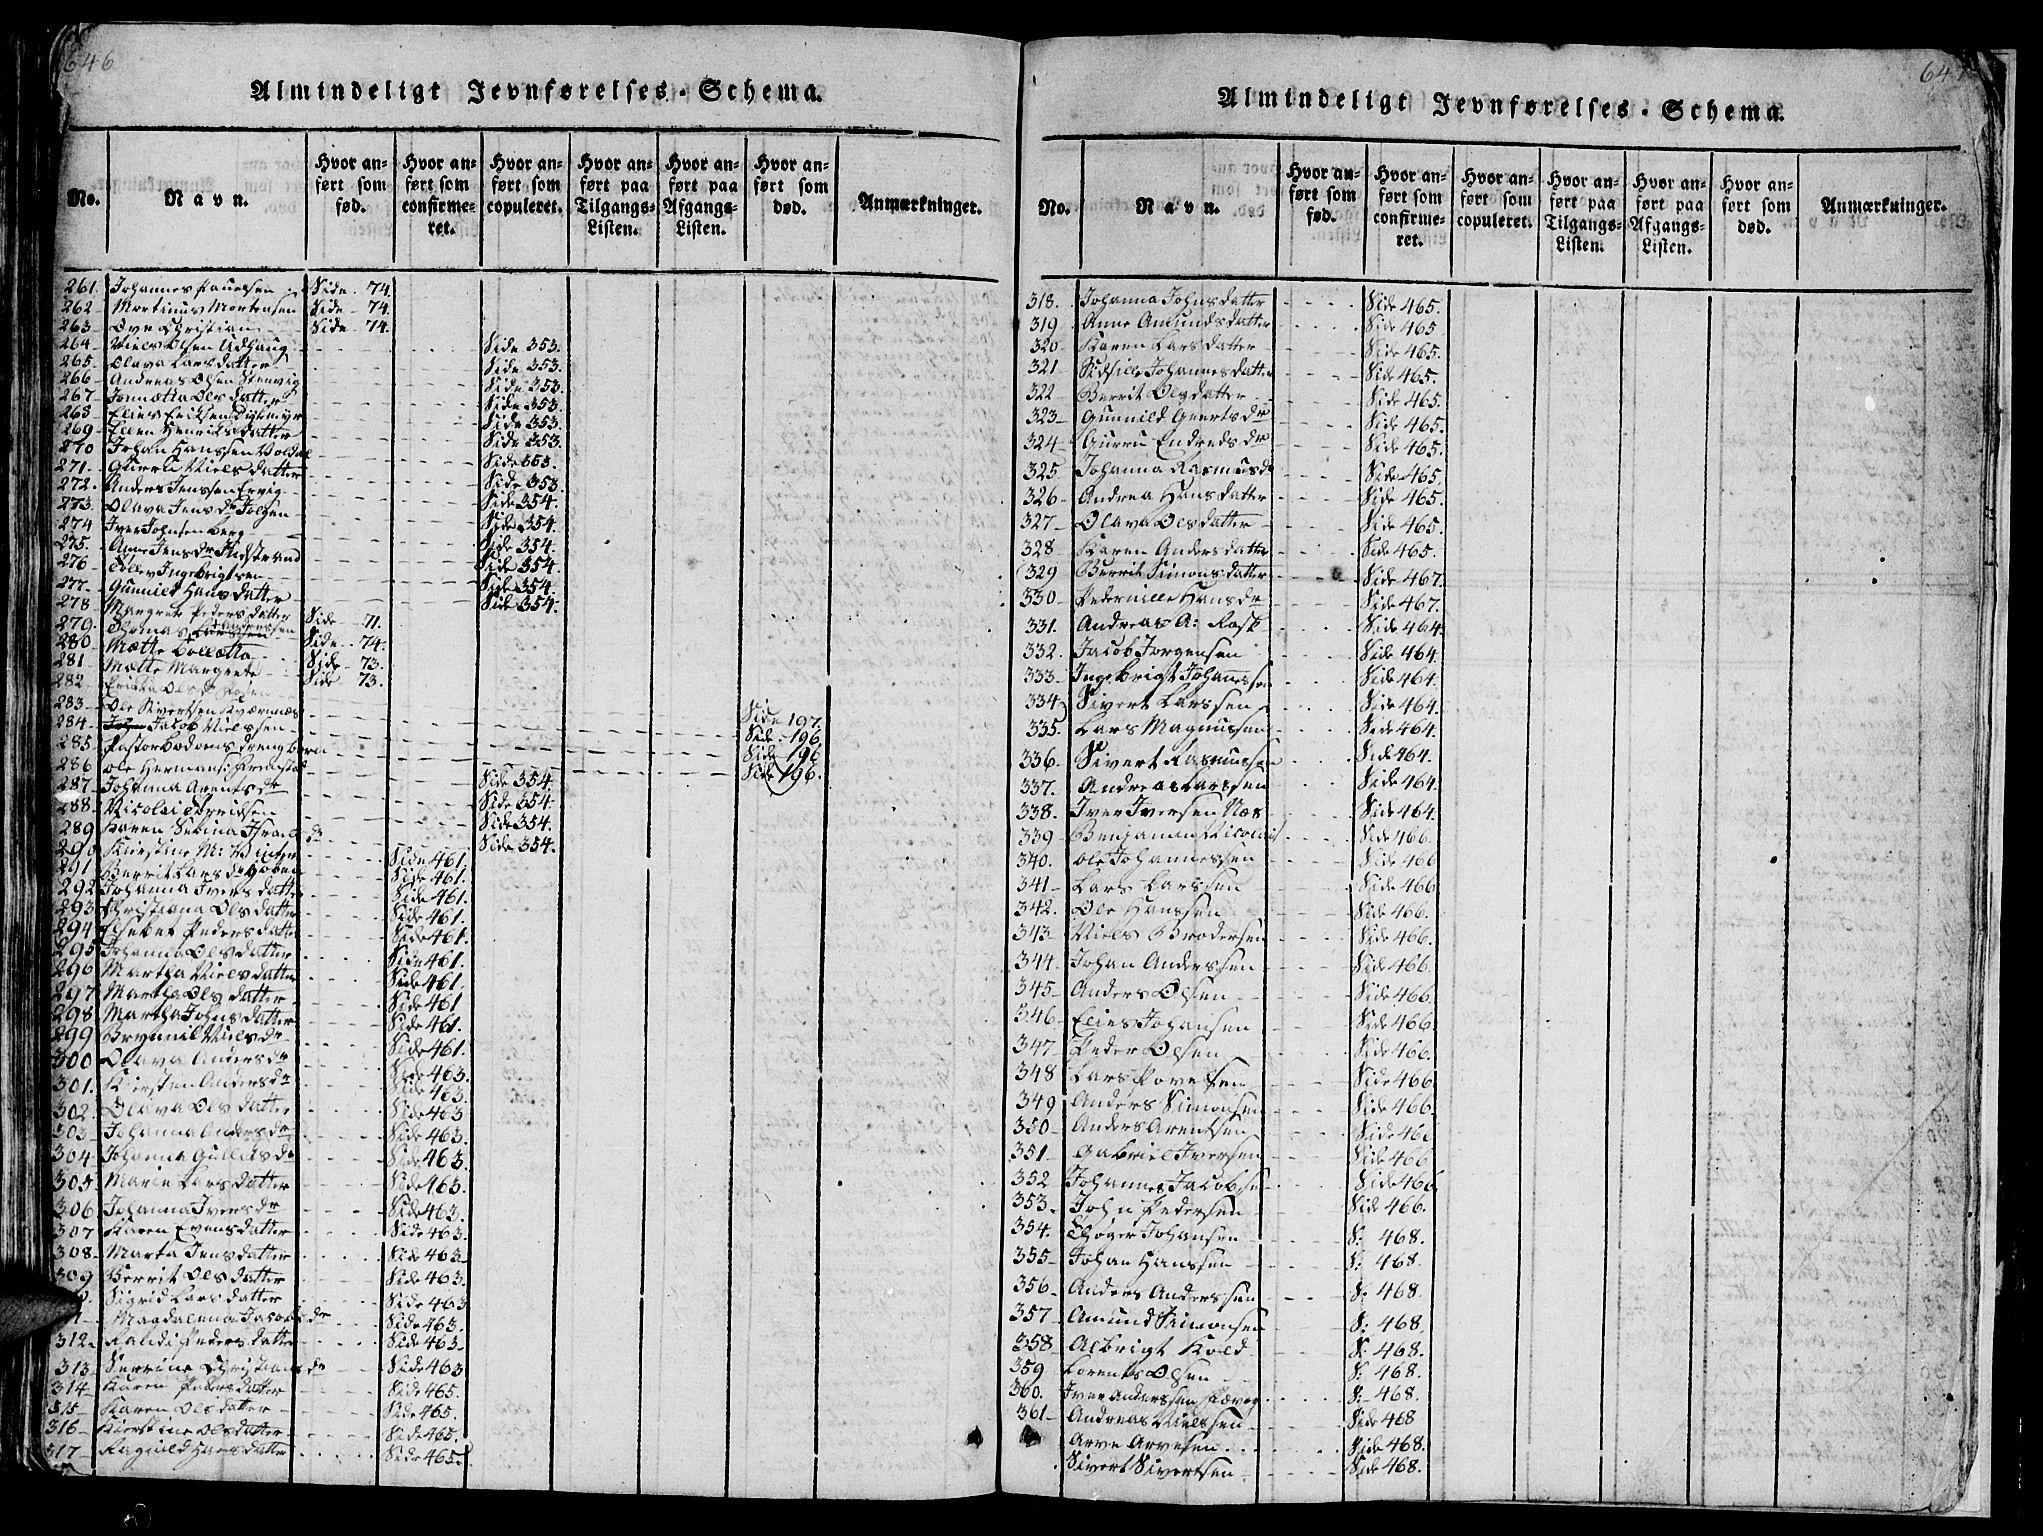 646
Almindeligt Jevnførelses-Schema.
No. Navn. Hvor anført som fød. Hvor anført som confirmeret. Hvor anført som copuleret. Hvor anført paa Tilgangs-Listen. Hvor anført paa Afgangs-Listen. Hvor anført som død. Anmærkninger.
261. Johannes Paulsen Side 74.
262 Martinus Mortensen Side 74.
263 Ove Christian Side 74.
264 Niels Olsen Udhaug Side 353.
265. Olava Larsdatter Side 353.
266 Andreas Olsen Stenvig Side 353.
267 Jonnetta Olsdatter Side 353.
268 Elias Erichsen Side 353.
269 Ellen Henrichsdatter Side 353.
270 Johan Hanssen Side 353.
271. Gurru Nielsdatter Side 353.
272. Anders Jenssen Ervig Side 354.
273. Olava Jensdr Side 354.
274 Iver Johnsen Berg Side 354.
275. Anne Jensdr Indstrand Side 354.
276 Ellev Ingebrigtsen Side 354.
277 Gunnild Hansdatter Side 354.
278 Margrete Pedersdatter Side 71.
279. Thomas Larssen Side 74.
280 Mætte Collætta Side 73.
281 Mætte Margrete Side 73.
282. Olsdr
283 Ole Sivertsen Kværnnæs Side 197.
284 Jacob Nielssen Side 196
285 Pastor Bodoms drengbarn Side 196
286 Ole Hermans: Side 196.
287. Johanna Arentsdr Side 354.
288. Nicolai Side 354.
289 Karen Sebina Side 354.
290 Kirstine M: Winther Side 354.
291 Berrit Larsdr Side 461.
292 Johanna Iversdatter Side 461.
293 Christiana Olsdatter Side 461.
294 Elsebet Pedersdatter Side 461.
295 Johanna Olsdatter Side 461.
296 Martha Nielsdatter Side 461.
297 Martha Olsdatter Side 461
298 Martha Johnsdatter Side 461.
299 Brynnil Nielsdr Side 461.
300 Olava Andersdr Side 463.
301. Kirsten Andersdr Side 463.
302. Olava Olsdatter Side 463
303 Johanna Andersdr Side 463.
304 Johanna Side 463.
305 Marie Larsdatter Side 463.
306 Johanna Iversdr Side 463.
307 Karen Evensdatter Side 463.
308. Marta Jensdatter Side 463
309 Berrit Olsdatter Side 463.
Sigrid Larsdatter Side 463
Magdalena Jacobsdr Side 463.
312. Randi Pedersdatter Side 463.
313 Serrine Christiansdr Side 463
314 Karen Pedersdatter Side 465.
315 Karen Olsdatter Side 465.
316 Kirstine Olsdatter Side 465.
317 Ragnild Hansdatter Side 465.
647
Almindeligt Jevnførelses-Schema.
No. Navn. Hvor anført som fød. Hvor anført som confirmeret. Hvor anført som copuleret. Hvor anført paa Tilgangs-Listen. Hvor anført paa Afgangs-Listen. Hvor anført som død. Anmærkninger.
318. Johanna Johnsdatter Side 465.
319 Anne Amundsdatter Side 465
320 Karen Larsdatter Side 465.
321 Sidsille Johannesdatter Side 465.
322 Berrit Olsdatter Side 465.
323 Gunnild Geertsdr Side 465.
324 Gurru Endredsdr Side 465.
325 Johanna Rasmusdr Side 465.
326 Andrea Hansdatter Side 465.
327 Olava Olsdatter Side 465.
328 Karen Andersdatter Side 465.
329 Berrit Simonsdatter Side 467.
330 Pedernille Hansdr Side 467.
331. Andreas A: Rost Side 464.
332. Jacob Jørgensen Side 464.
333 Ingebrigt Johannessen Side 464.
334 Sivert Larssen Side 464.
335. Lars Magnussen Side 464.
336. Sivert Rasmussen Side 464.
337. Andreas Larssen Side 464.
338. Iver Iversen Næs Side 464.
339 Benjamin Nicolai Side 466.
340. Ole Johannessen Side 466
341 Lars Larssen Side 466
342. Ole Hanssen Side 466.
343 Niels Brodersen Side 466.
344 Johan Anderssen Side 466.
345 Anders Olsen Side 466.
346 Elies Johansen Side 466.
347 Peder Olsen Side 466.
348 Lars Povelsen Side 466
349 Anders Simonsen Side 466.
350 Anders Arentsen Side 466
351 Gabriel Iversen Side 466
352 Johannes Jacobsen Side 466.
353. John Pedersen Side 466.
354. Thøger Johansen S: 468.
355 Johan Hanssen S: 468.
356 Anders Anderssen S: 468.
357 Amund Simonsen S: 468.
358 Albrigt Kold S: 468.
359 Lorents Olsen S: 468.
360. Iver Anderssen S: 468.
361 Andreas Nielssen Side 468
Arve Arvesen Side 468.
Sivert Sivertsen Side 468.